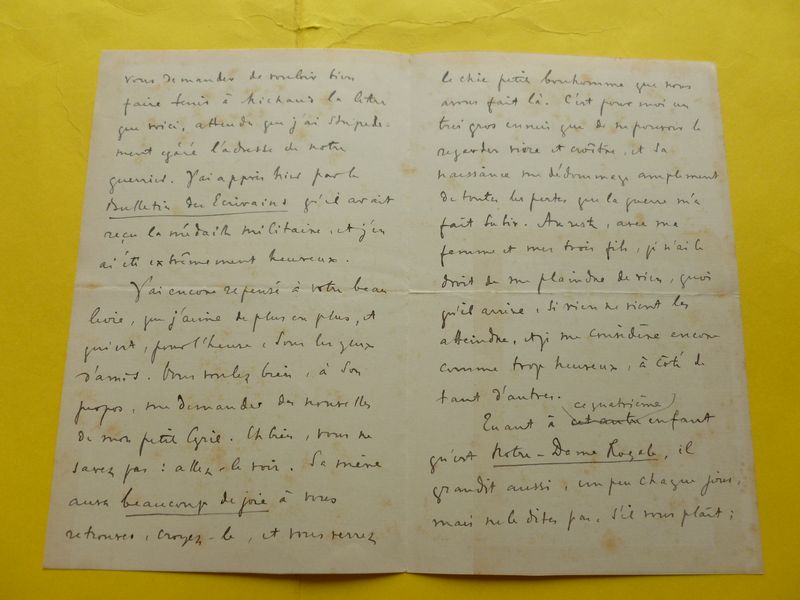 vous demander de vouloir bien
faire tenir à Michaud la lettre
que voici, attendu que j'ai stupide-
ment égaré l'adresse de notre
guerrier. J'ai appris hier par le
Bulletin des Ecrivains qu'il avait
reçu la médaille militaire, et j'en
ai été extrêmement heureux.
J'ai encore repensé à votre beau
livre, que j'aime de plus en plus, et
qui est, pour l'heure, sous les yeux
d'amis. Vous voulez bien, à son
propos, me demander des nouvelles
de mon petit Cyril. Eh bien, vous ne
savez pas : allez-le voir. Sa mère
aura beaucoup de joie à vous
retrouver, croyez-le, et vous verrez
le chic petit bonhomme que nous
avons fait là. C'est pour moi un
très gros ennui que de ne pouvoir le
regarder vivre et croître, et sa
naissance me dédommage amplement
de toutes les pertes que la guerre m'a
fait subir. Au reste, avec ma
femme et mes trois fils, je n'ai le
droit de me plaindre de rien, quoi
qu'il arrive, si rien ne vient les
atteindre, et je me considère encore
comme trop heureux, à côté de
tant d'autres.
Quant à cet autre ce quatrième enfant
qu'est Notre-Dame Royale, il
grandit aussi, un peu chaque jour,
mais ne le dites pas, s'il vous plaît ;